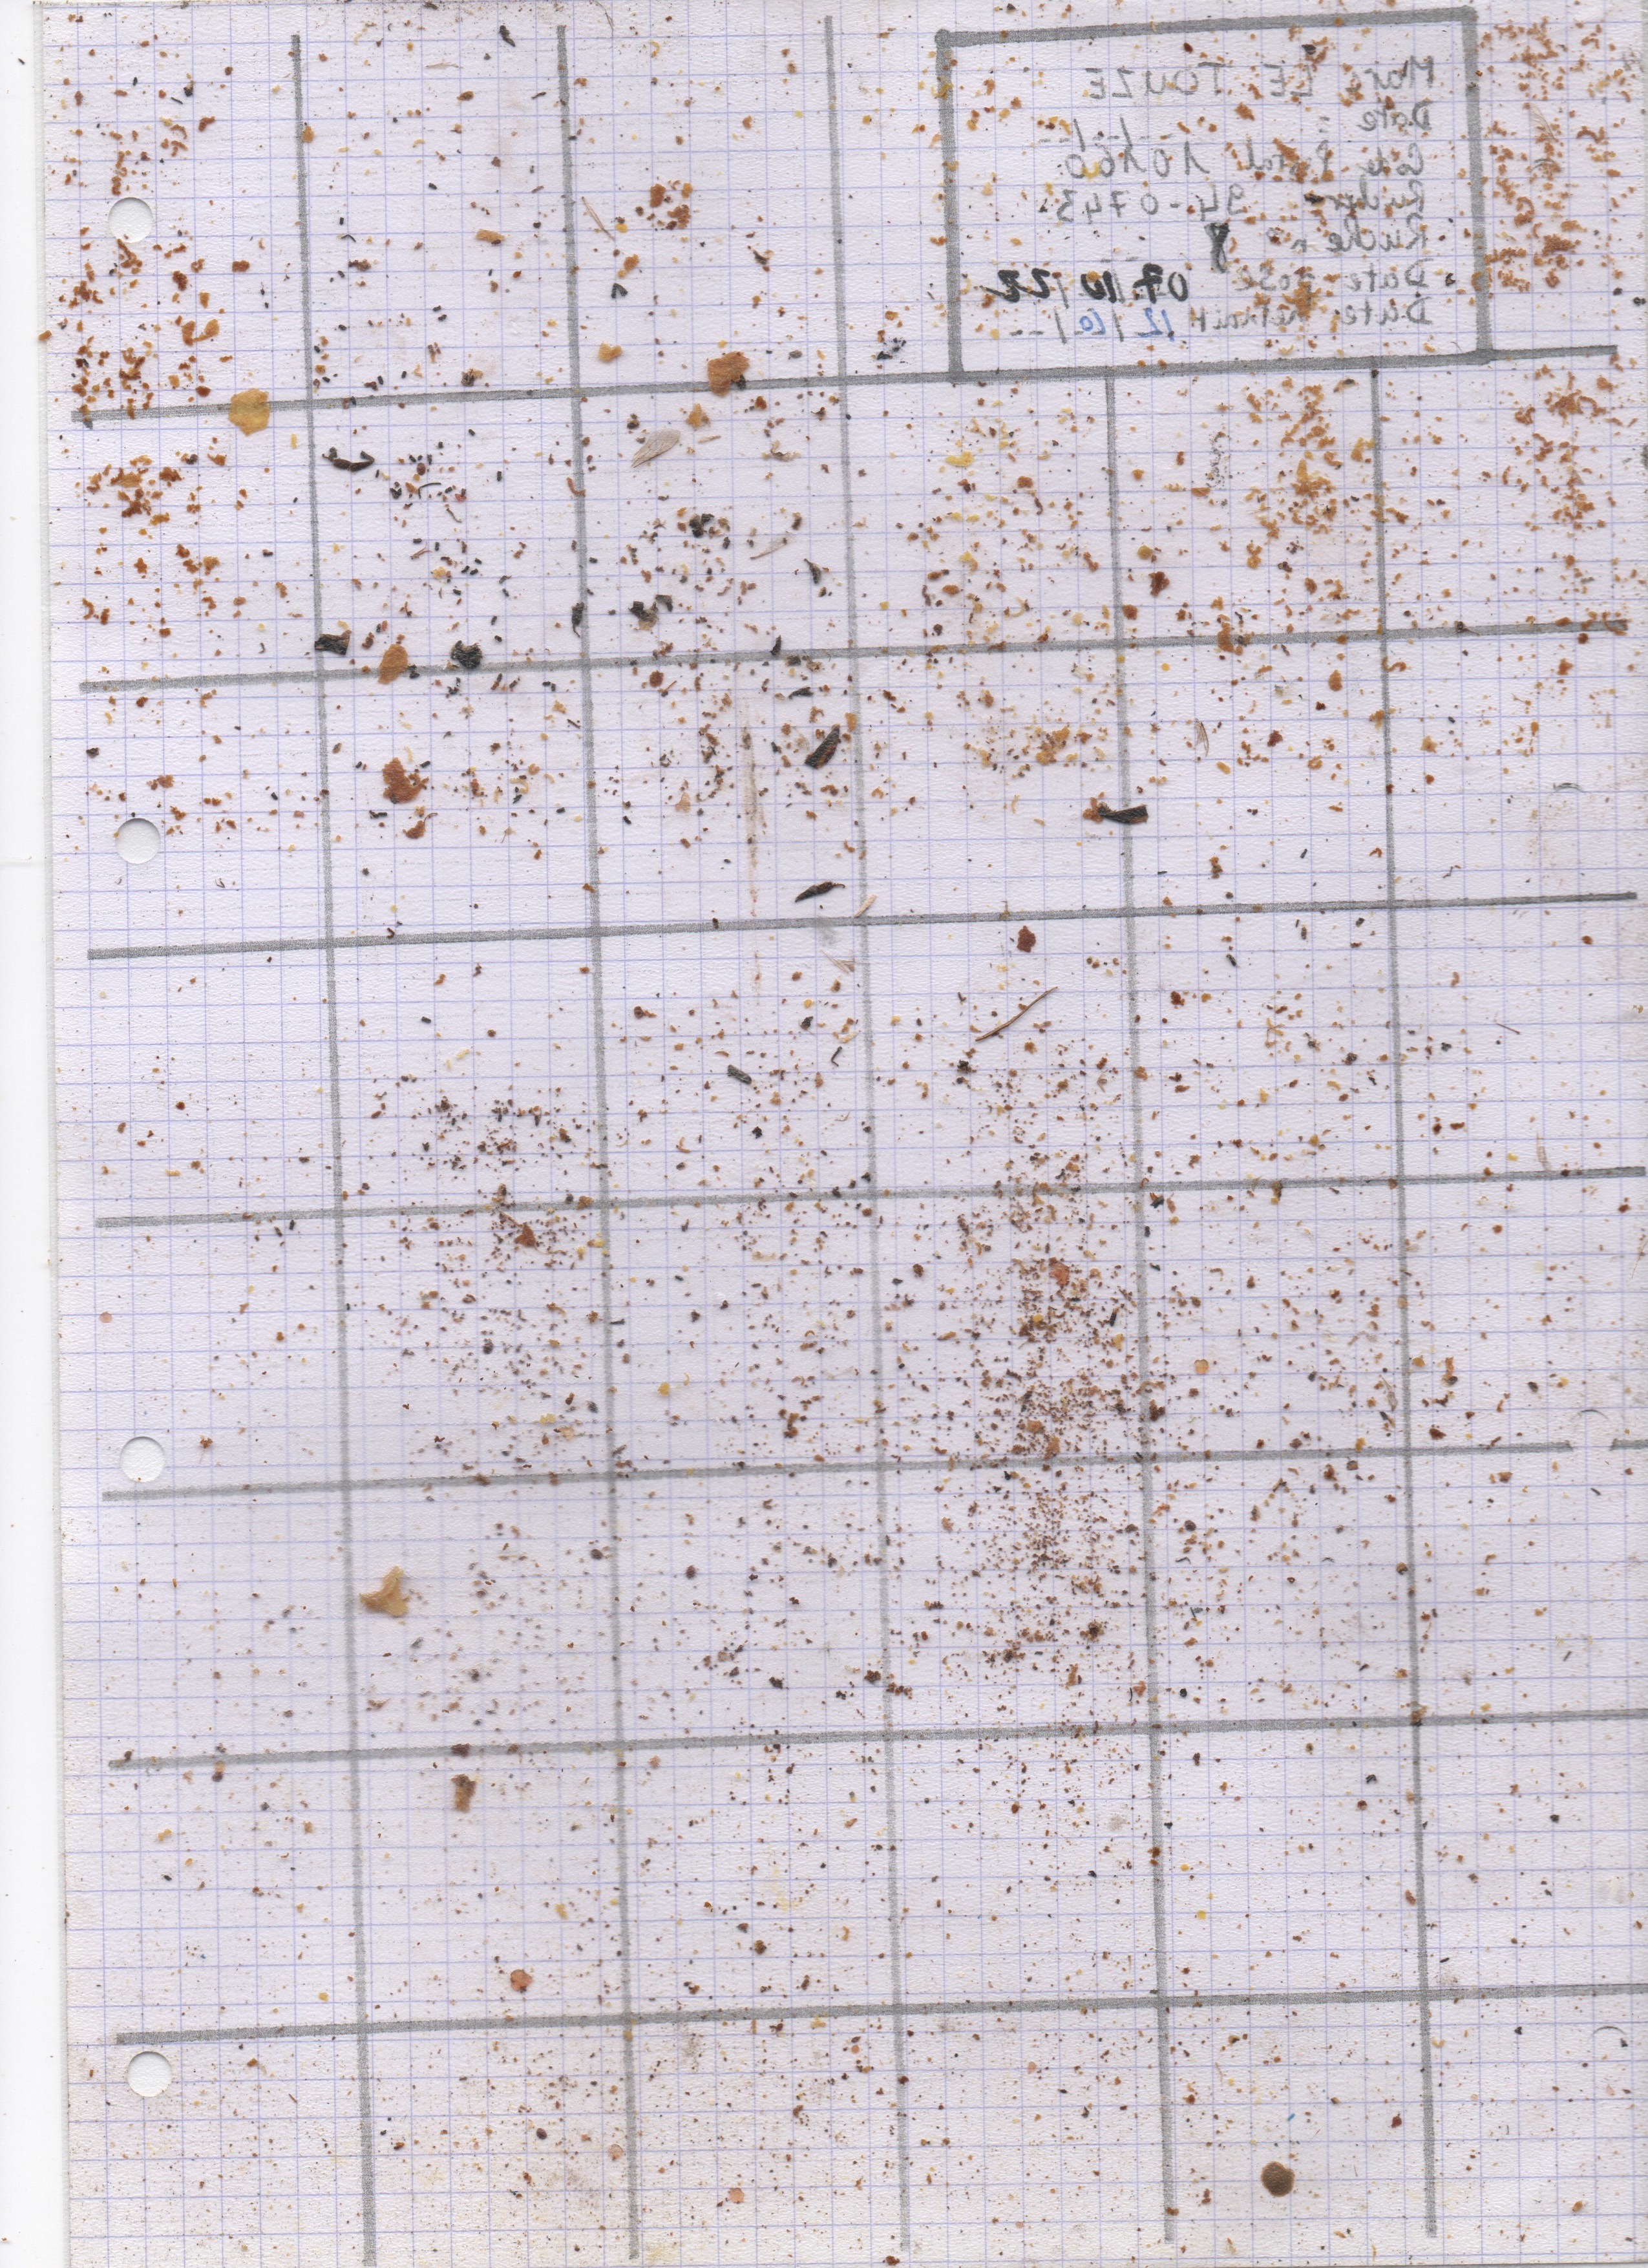 Marc LE TOUZE
Date : --/--/--
Code Postal 10160
Rucher 94-0743
Ruche n° 8
Date pose 07/10/22
Date retrait 12/10/--